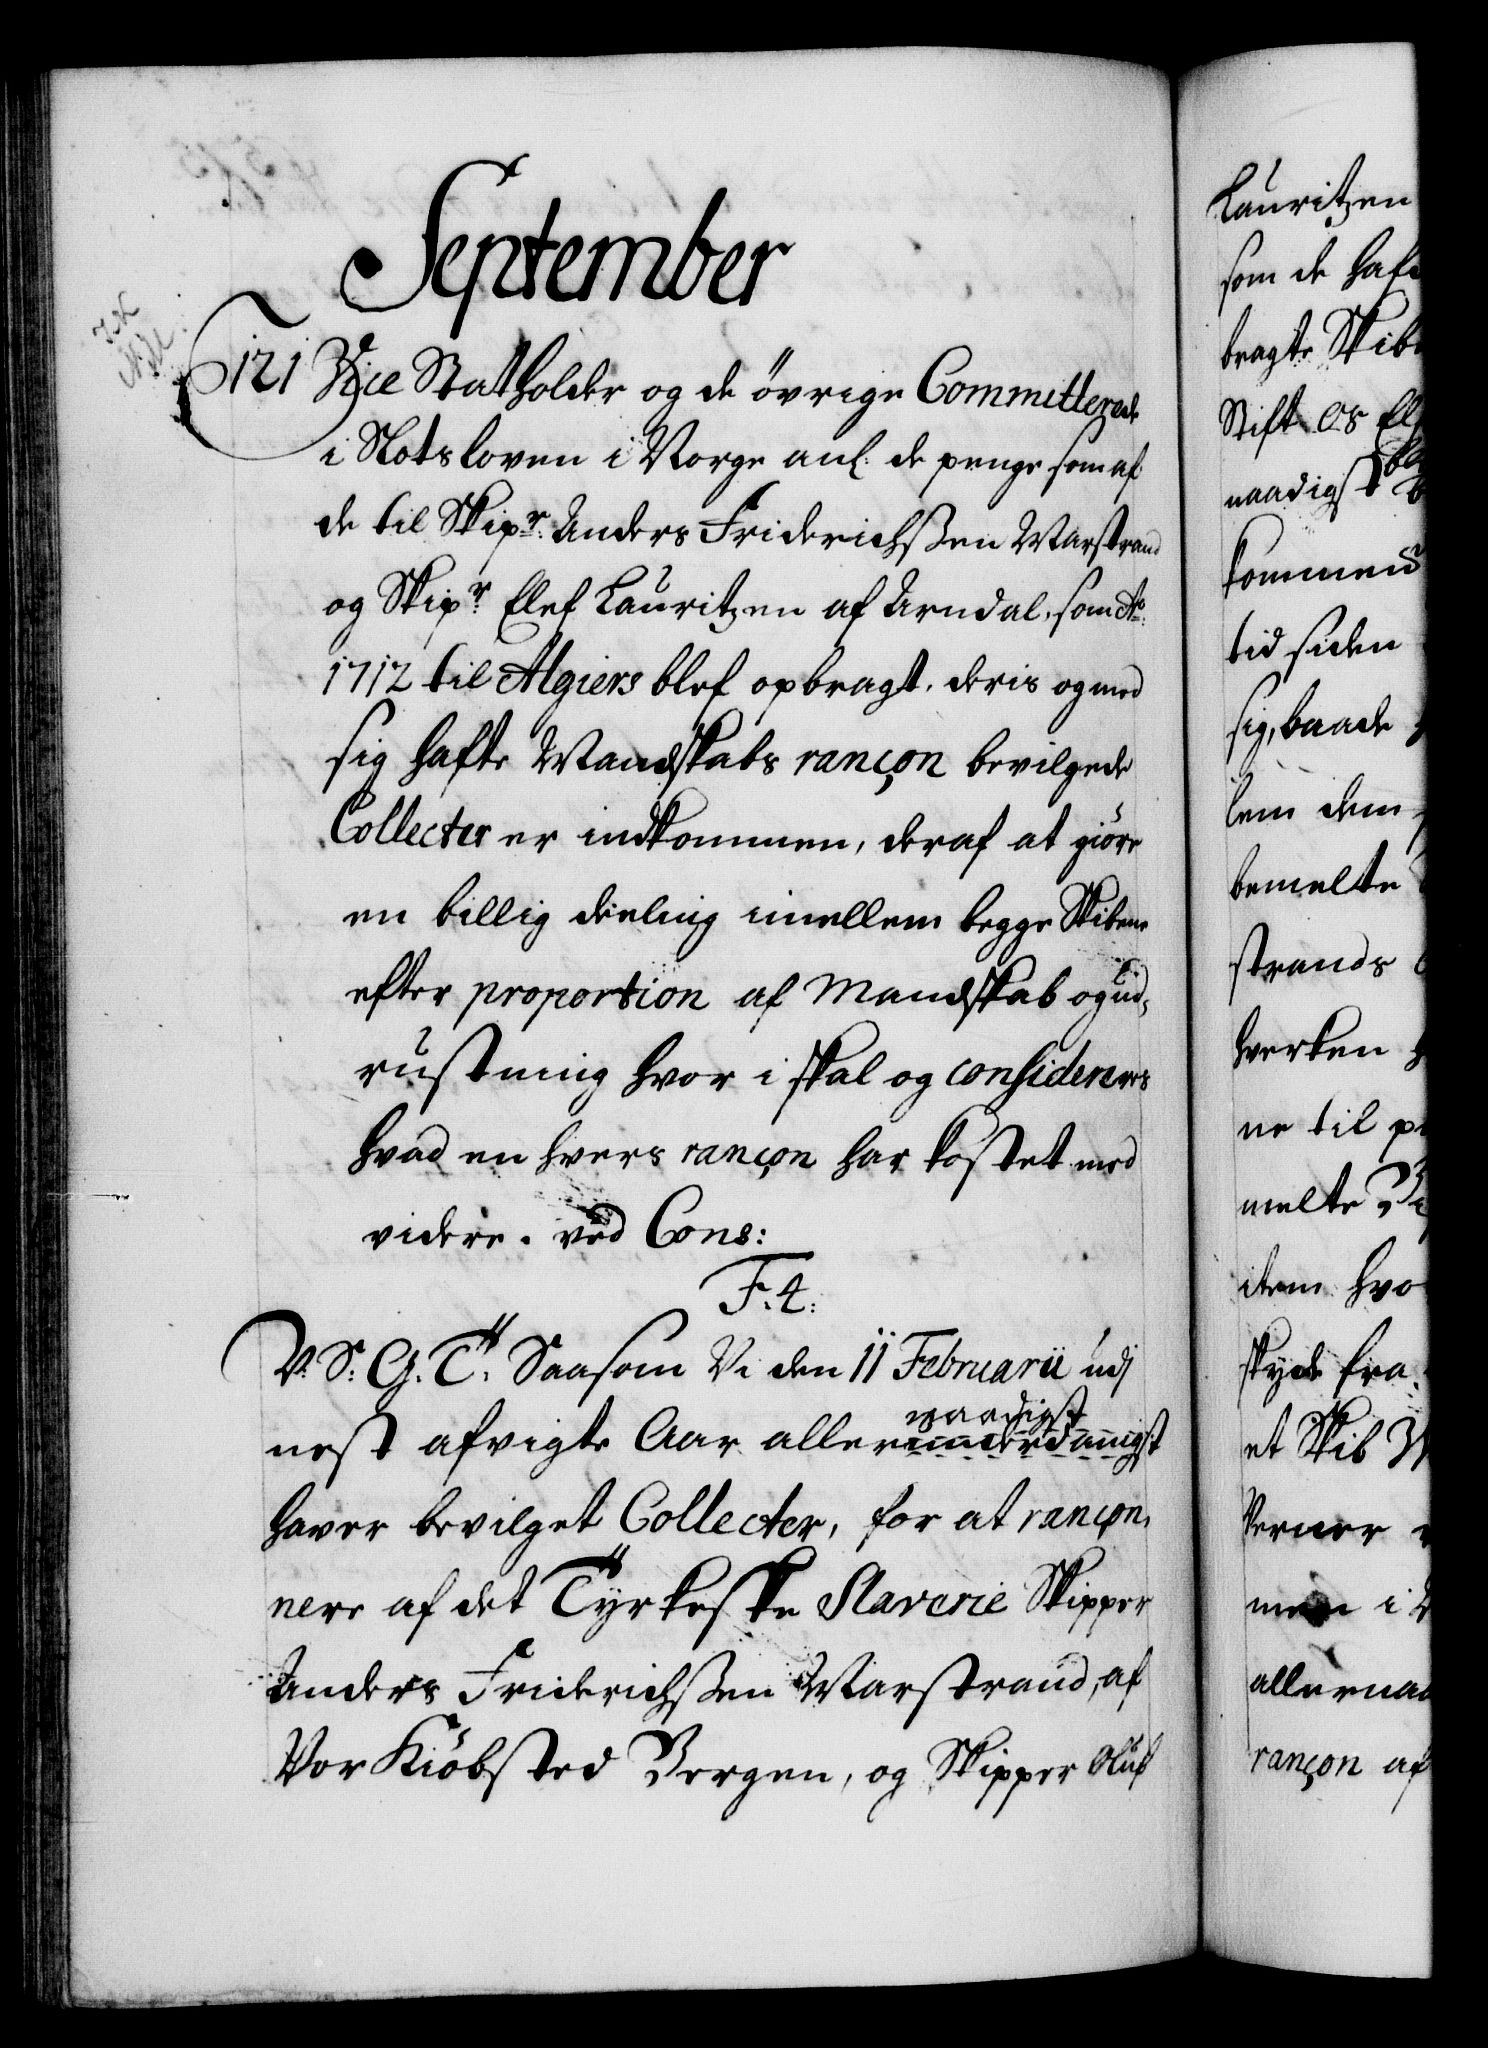 September
121 Vice Statholder og de övrige Committerede
i Slotsloven i Norge anl: de penge som af
de til Skipr: Anders Friderichßen Marstrand
og Skipr: Elef Lauritzen af Arndal, som Ao:
1712 til Algiers blef opbragt, deris og med
sig hafte Mandskabs rançon bevilgede
Collecter er indkommen, deraf at giöre
en billig deeling imellem begge Skibene
efter proportion af Mandskab og ud,
rustning hvor i skal og considereres
hvad en hvers rançon har kostet med
videre. ved Cons:
F. 4:
V. S: G. T: Saasom Vi den 11 Februarii udj
nest afvigte Aar allerunderdanigst
naadigst
haver bevilget Collecter, for at rançon,
nere af det Tyrkeske Slaverie Skipper
Anders Friderichßen Marstrand, af
Vor Kiöbsted Bergen, og Skipper Oluf
Lauritzen
som de hafe
bragte Skib
Stift os El
naadigst
kommen
tid siden
sig, baade
lem dem
bemelte
strands
hverken
ne til p
melte
item hvo
skyde fra
et Skib
Verner
men i
allernaa
rançon af